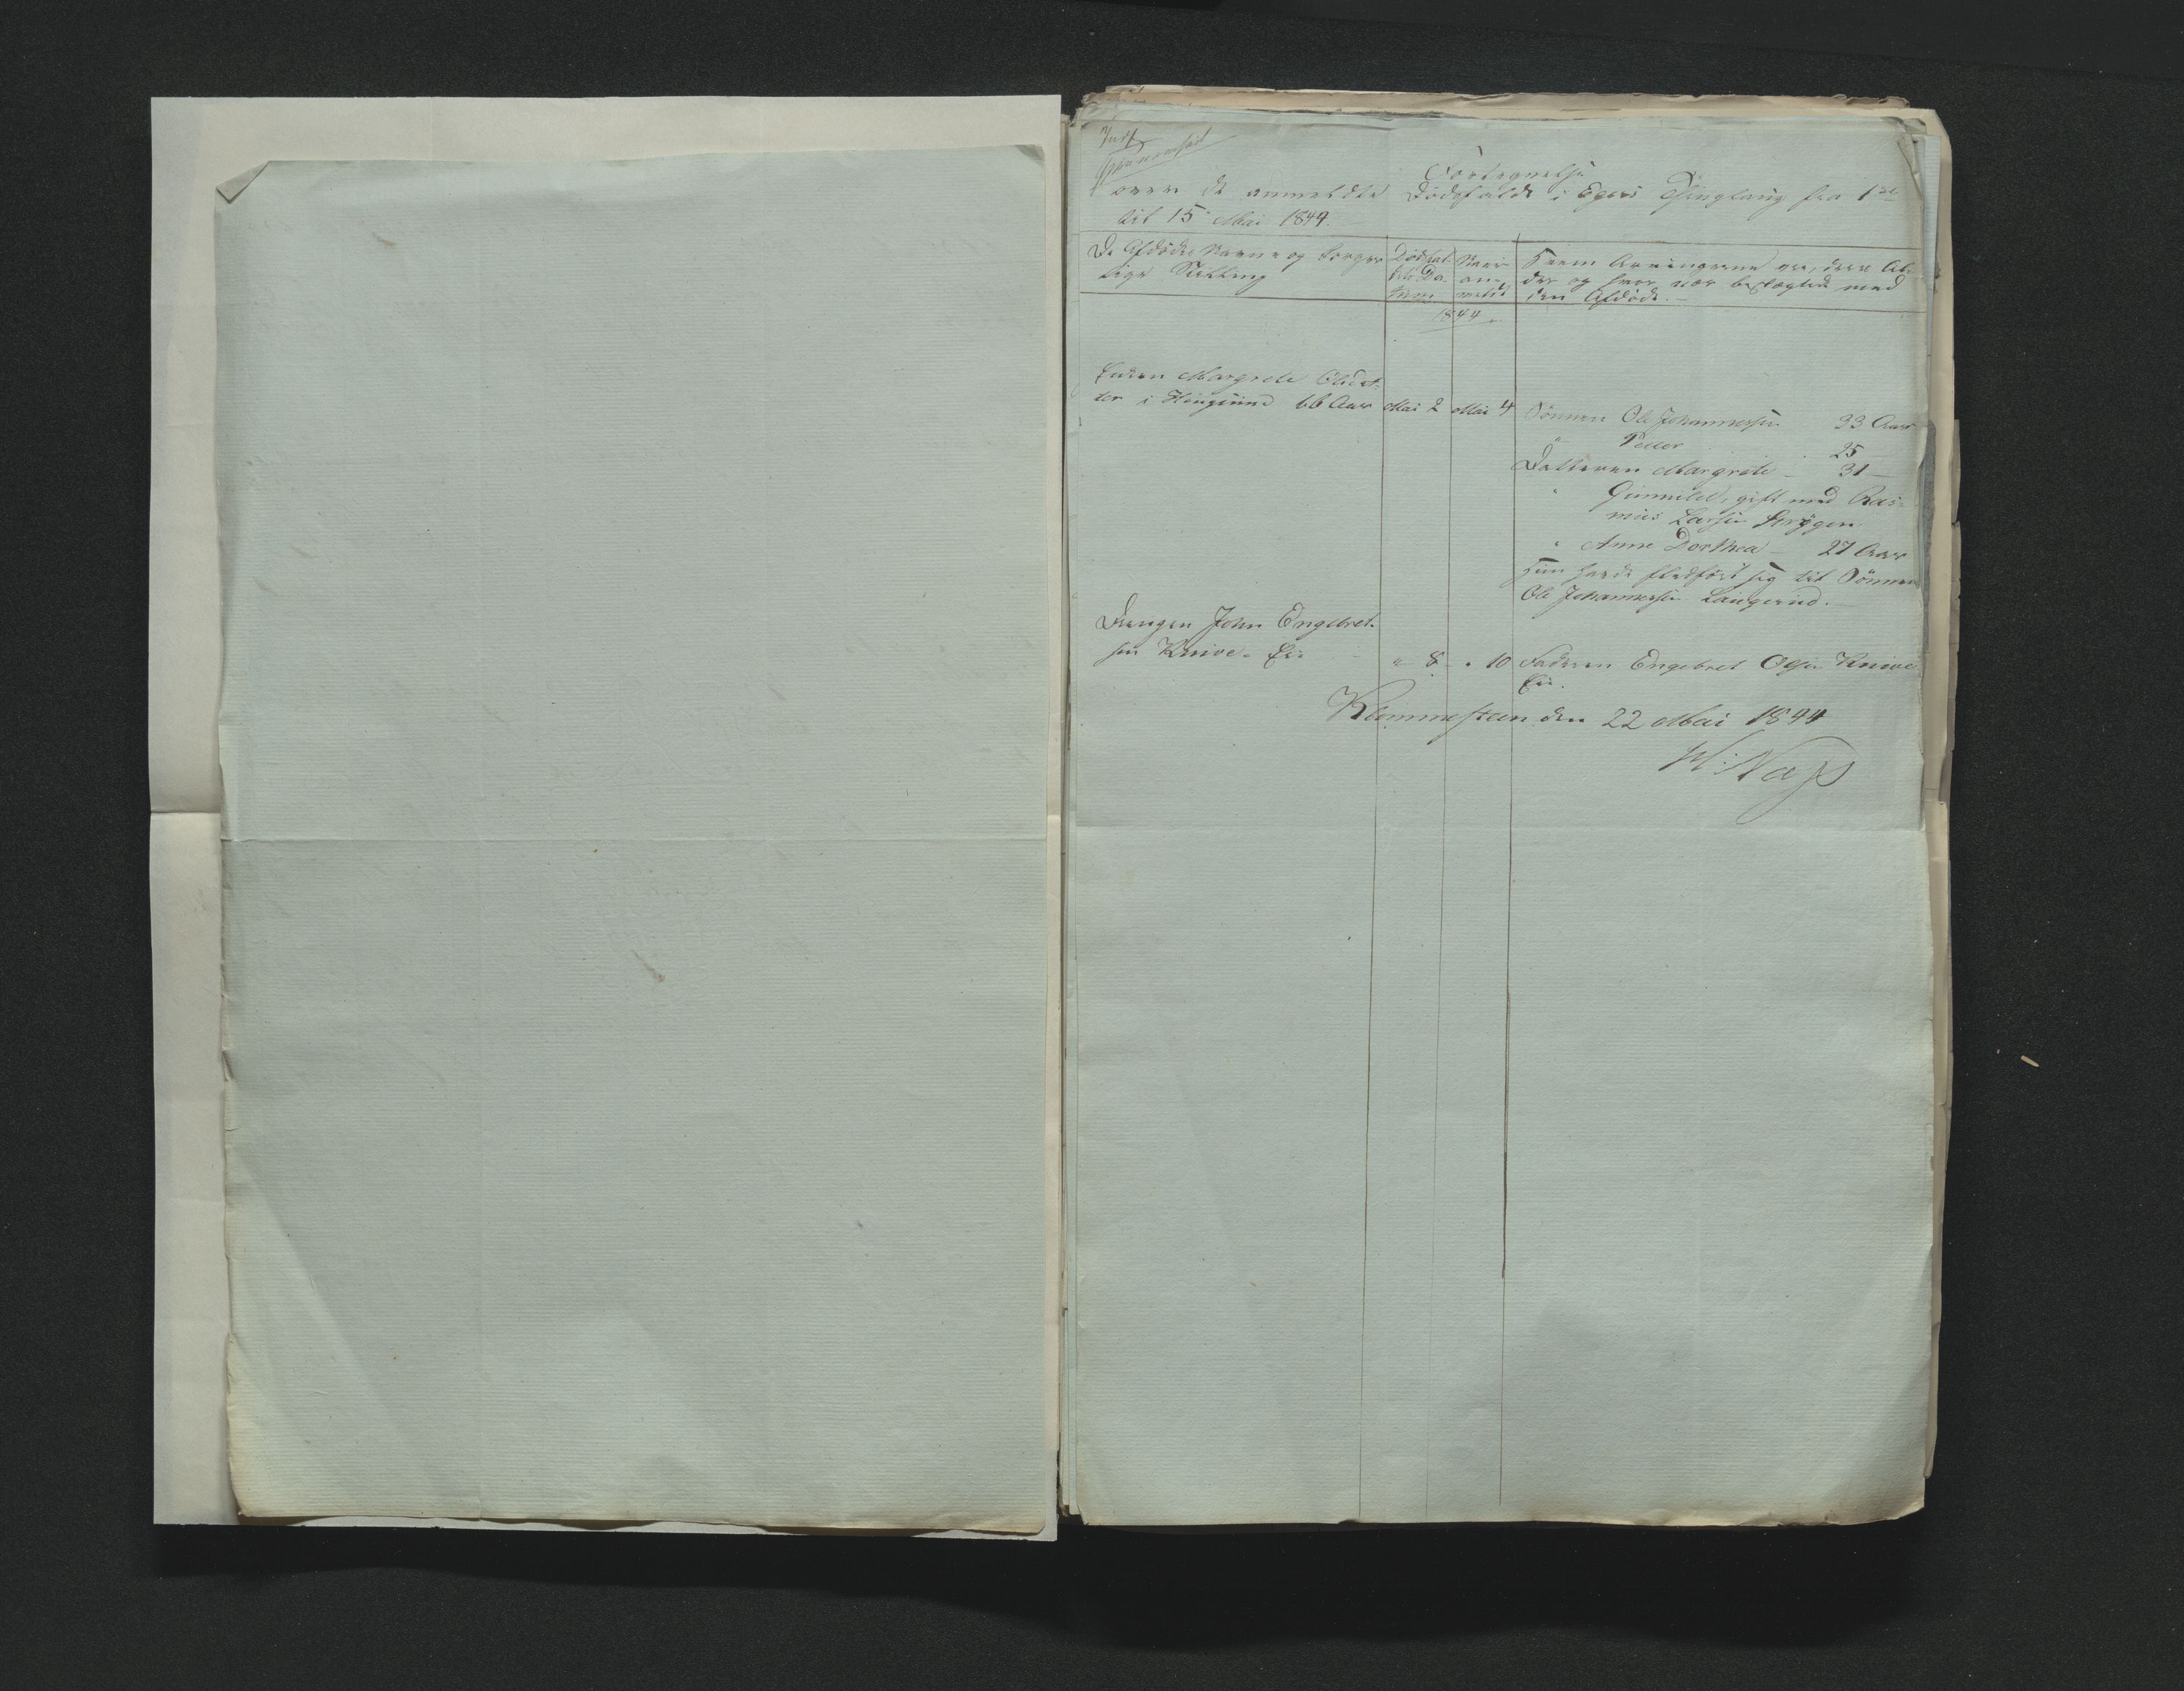 Fortegnelse
over de anmeldte Dödsfalde i Egers Thinglaug fra 1ste
til 15 Mai 1844.
De Afdödes Navne og borger
lige Stilling
Dödsfal-
dets Da-
tum
Naar
an-
meldt
Hvem Arvingerne ere, deres Al-
der og hvor nær beslægtede med
den Afdöde.
1844.
Enken Margrete Olsdat-
ter i 66 Aar Mai 2 Mai 4
Sönnen Ole Johannessen 33 Aar
" Peder 25
Datteren Margrete 31
" Gunnild, gift med Ras-
mus Larsen
" Anne Dorthea 27 Aar
Hun havde fledfört sig til Sönnen
Ole Johannessen
Drengen John Engebret-
sen Knive-Eie " 8 " 10
Faderen Engebret Olsen Knive
Eie.
den 22 Mai 1844